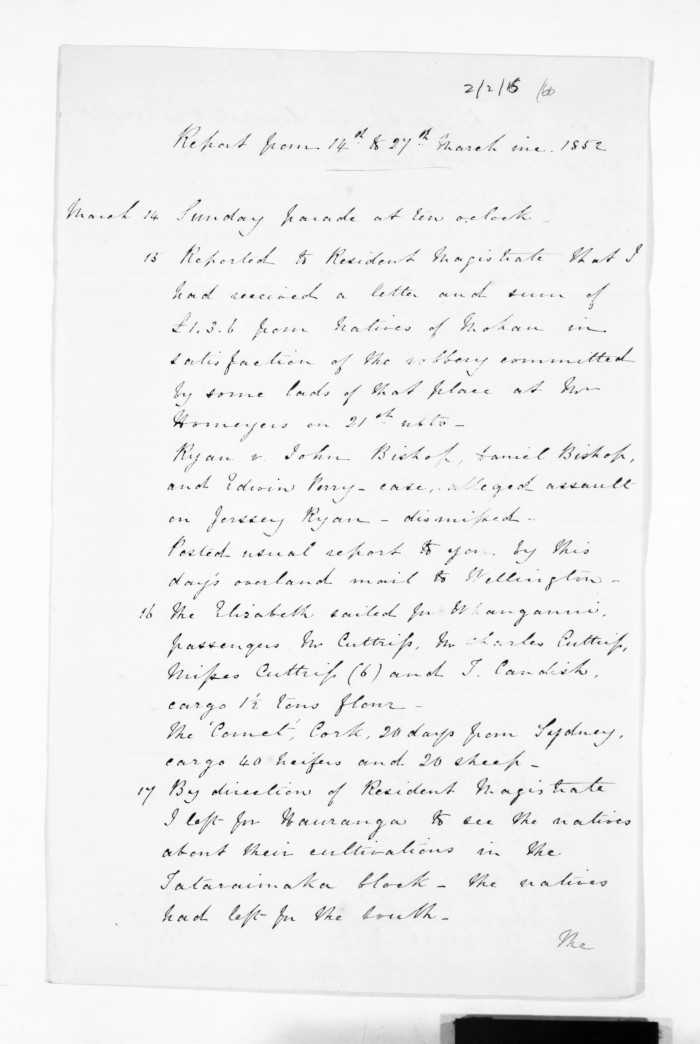 2/2/15
Report from 14th to 27th March inc. 1852
March 14 Sunday parade at ten o'clock -
15 Reported to Resident Magistrate that I
had received a letter and sum of
£1.3.6 from natives of Mokau in
satisfaction of the robbery committed
by some lads of that place at Mr
Homeyers on 21st ulto -
Ryan v. John Bishop, Daniel Bishop,
and Edwin Perry - case, alleged assault
on Jerssey Ryan - dismissed -
Posted usual report to you by this
day's overland mail to Wellington -
16 The Elizabeth sailed for Whanganui,
passengers Mr Cuttriss, Mr Charles Cuttriss,
Misses Cuttriss (6) and T. Candish,
cargo 1½ tons flour -
The 'Comet', Cork, 20 days from Sydney,
cargo 40 heifers and 20 sheep -
17 By direction of Resident Magistrate
I left for Hauranga to see the natives
about their cultivations in the
Tataraimaka block - the natives
had left for the south -
The